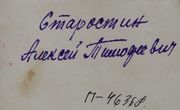 Старостин
Алексей Тимофеевич
П-46368